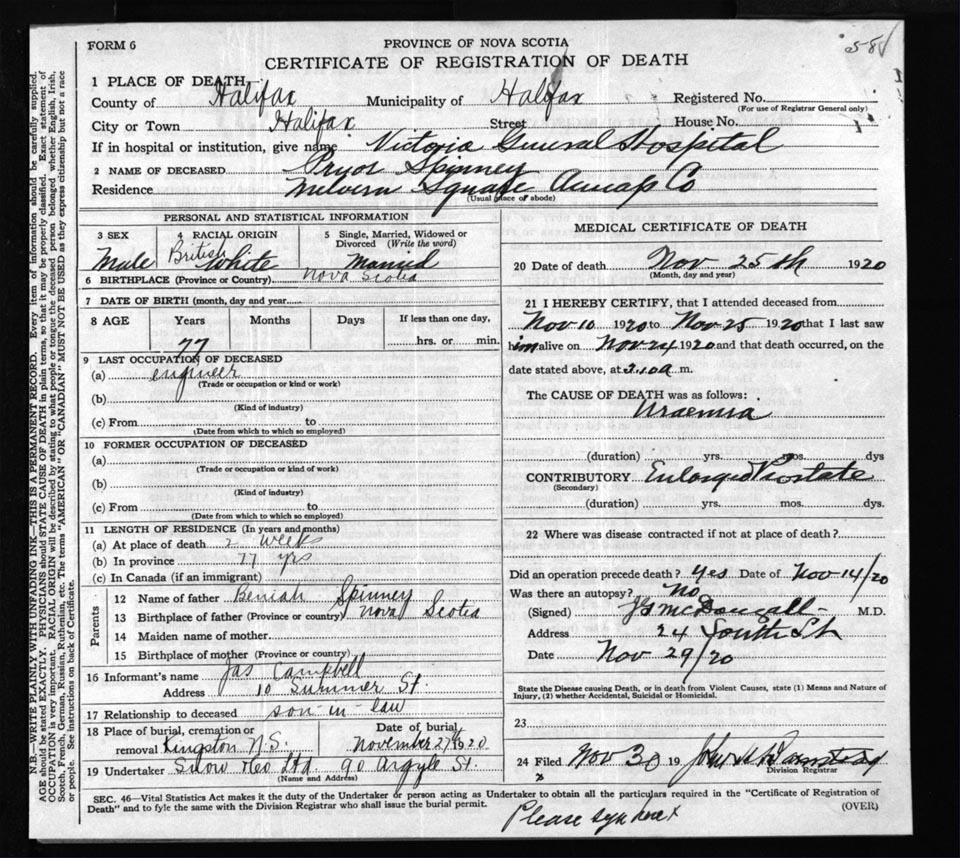 581
FORM 6
PROVINCE OF NOVA SCOTIA
CERTIFICATE OF REGISTRATION OF DEATH
1 PLACE OF DEATH
County of Halifax Municipality of Halifax Registered No.
(For use of Registrar General only)
City or Town Halifax Street House No.
If in hospital or institution, give name Victoria General Hospital
2 NAME OF DECEASED Pryor Spinney
Residence Melvern Square Annap Co
(Usual place of abode)
PERSONAL AND STATISTICAL INFORMATION
3 SEX 4 RACIAL ORIGIN 5 Single, Married, Widowed or Divorced (Write the word)
Male British White Married
6 BIRTHPLACE (Province or Country) Nova Scotia
7 DATE OF BIRTH (month, day and year)
8 AGE Years Months Days If less than one day,
77 hrs. or min.
9 LAST OCCUPATION OF DECEASED
(a) engineer
(Trade or occupation or kind or work)
(b)
(Kind of industry)
(c) From to
(Date from which to which so employed)
10 FORMER OCCUPATION OF DECEASED
(a)
(Trade or occupation or kind of work)
(b)
(Kind of industry)
(c) From to
(Date from which to which so employed)
11 LENGTH OF RESIDENCE (In years and months)
(a) At place of death 2 weeks
(b) In province 77 yrs
(c) In Canada (if an immigrant)
Parents
12 Name of father Beniah Spinney
13 Birthplace of father (Province or country) Nova Scotia
14 Maiden name of mother
15 Birthplace of mother (Province or country)
16 Informant's name Jas Campbell
Address 10 Summer St.
17 Relationship to deceased son in law
18 Place of burial, cremation or removal Kingston N.S. Date of burial November 27 1920
19 Undertaker Snow & Co Ltd 90 Argyle St.
(Name and Address)
MEDICAL CERTIFICATE OF DEATH
20 Date of death Nov 25th 1920
(Month, day and year)
21 I HEREBY CERTIFY, that I attended deceased from
Nov 10 1920 to Nov 25 1920 that I last saw
him alive on Nov 24 1920 and that death occurred, on the
date stated above, at 2.10 a m.
The CAUSE OF DEATH was as follows:
Uraemia
(duration) yrs. mos. dys
CONTRIBUTORY Enlarged Prostate
(Secondary)
(duration) yrs. mos. dys.
22 Where was disease contracted if not at place of death?
Did an operation precede death? Yes Date of Nov 14/20
Was there an autopsy? No
(Signed) McDougall M.D.
Address 24 South St
Date Nov 29/20
State the Disease causing Death, or in death from Violent Causes, state (1) Means and Nature of
Injury, (2) whether Accidental, Suicidal or Homicidal.
23
24 Filed Nov 30 19
Division Registrar
SEC. 46—Vital Statistics Act makes it the duty of the Undertaker or person acting as Undertaker to obtain all the particulars required in the "Certificate of Registration of
Death" and to fyle the same with the Division Registrar who shall issue the burial permit.
(OVER)
Please sign here x
N.B.—WRITE PLAINLY WITH UNFADING INK—THIS IS A PERMANENT RECORD. Every item of information should be carefully supplied.
AGE should be stated EXACTLY. PHYSICIANS should STATE CAUSE OF DEATH in plain terms, so that it may be properly classified. Exact statement of
OCCUPATION is very important. RACIAL ORIGIN will be described by stating to what people or tongue the deceased person belonged, whether English, Irish,
Scotch, French, German, Russian, Ruthenian, etc. The terms "AMERICAN" OR "CANADIAN" MUST NOT BE USED as they express citizenship but not a race
or people. See instructions on back of Certificate.